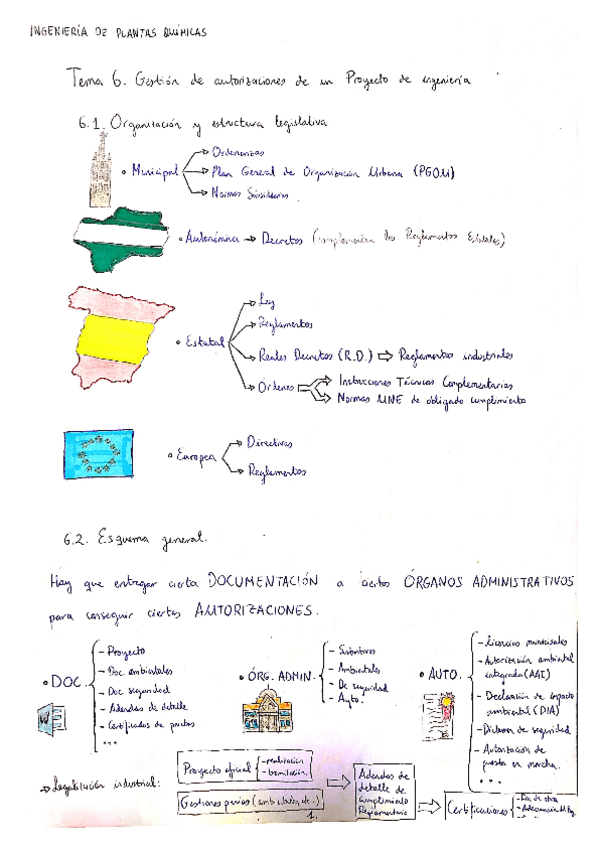 INGENIERÍA DE PLANTAS QUÍMICAS
Tema 6. Gestión de autorizaciones de un Proyecto de ingeniería
6.1. Organización y estructura legislativa
• Municipal
→ Ordenanzas
→ Plan General de Organización Urbana (PGOU)
→ Normas Subsidiarias
• Autonómica → Decretos (complementan los Reglamentos Estatales)
• Estatal
→ Ley
→ Reglamentos
→ Reales Decretos (R.D.) ⇒ Reglamentos industriales
→ Ordenes
Instrucciones Técnicas Complementarias
Normas UNE de obligado cumplimiento
• Europea
→ Directivas
→ Reglamentos
6.2. Esquema general.
Hay que entregar cierta DOCUMENTACIÓN a ciertos ÓRGANOS ADMINISTRATIVOS
para conseguir ciertas AUTORIZACIONES.
• DOC.
- Proyecto
- Doc. ambientales
- Doc seguridad
- Adendas de detalle
- Certificados de pruebas
...
• ÓRG. ADMIN.
- Sustantivos
- Ambientales
- De seguridad
- Ayto.
• AUTO.
- Licencias municipales
- Autorización ambiental
integrada (AAI)
- Declaración de impacto
ambiental (DIA)
- Dictamen de seguridad
- Autorización de
puesta en marcha.
...
→ Legislación industrial:
Proyecto oficial
- realización
- tramitación.
Gestiones previas (ambientales, etc.)
Adendas de
detalle de
cumplimiento
Reglamentario
Certificaciones
- Fin de obra
1.